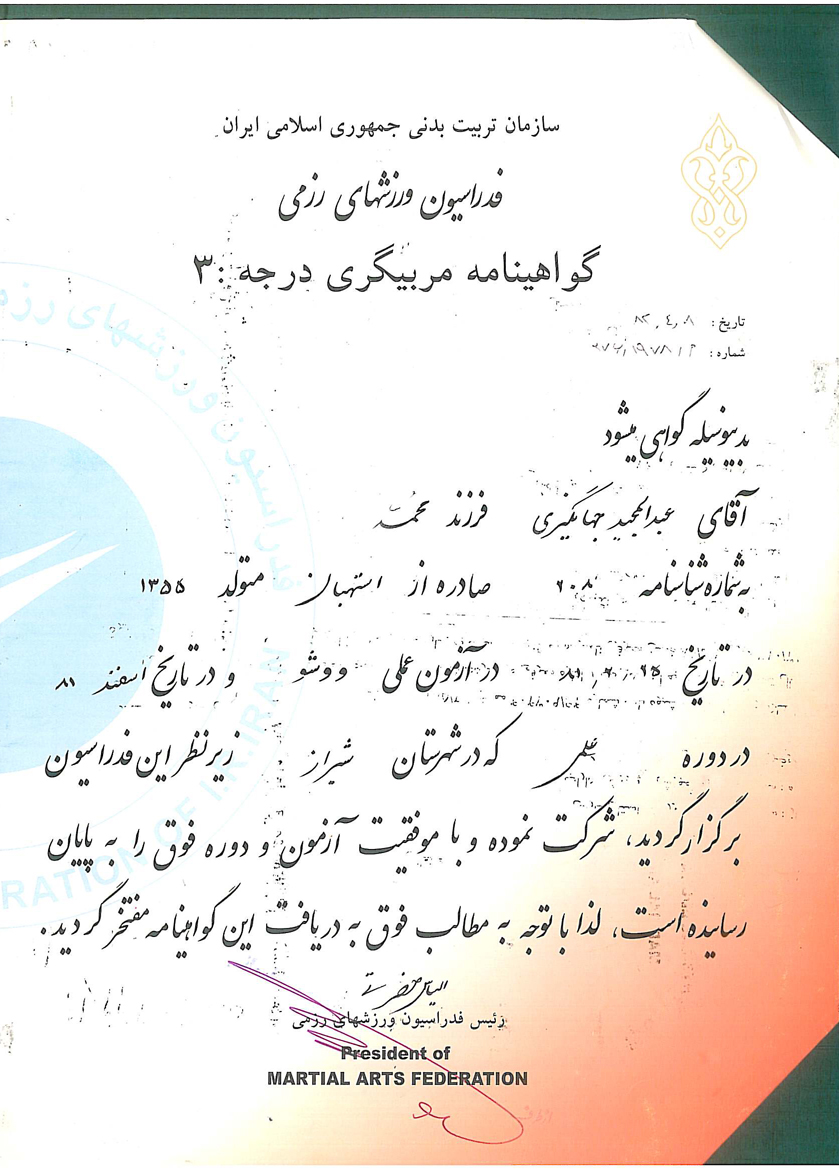 سازمان تربیت بدنی جمهوری اسلامی ایران
فدراسیون ورزشهای رزمی
گواهینامه مربیگری درجه :۳
تاریخ: ۸۲,۴,۰۸
شماره:
بدینوسیله گواهی میشود
آقای عبدالمجید جهانگیری فرزند محمد
به شماره شناسنامه صادره از استهبان متولد ۱۳۵۵
در تاریخ در آزمون عملی ووشو و در تاریخ اسفند ۸۱
در دوره علمی که در شهرستان شیراز زیر نظر این فدراسیون
برگزار گردید، شرکت نموده و با موفقیت آزمون و دوره فوق را به پایان
رسانیده است، لذا با توجه به مطالب فوق به دریافت این گواهینامه مفتخر گردید.
الیاس حضرتی
رئیس فدراسیون ورزشهای رزمی
President of
MARTIAL ARTS FEDERATION
فدراسیون ورزشهای رزمی
RATION OF I.R.IRAN